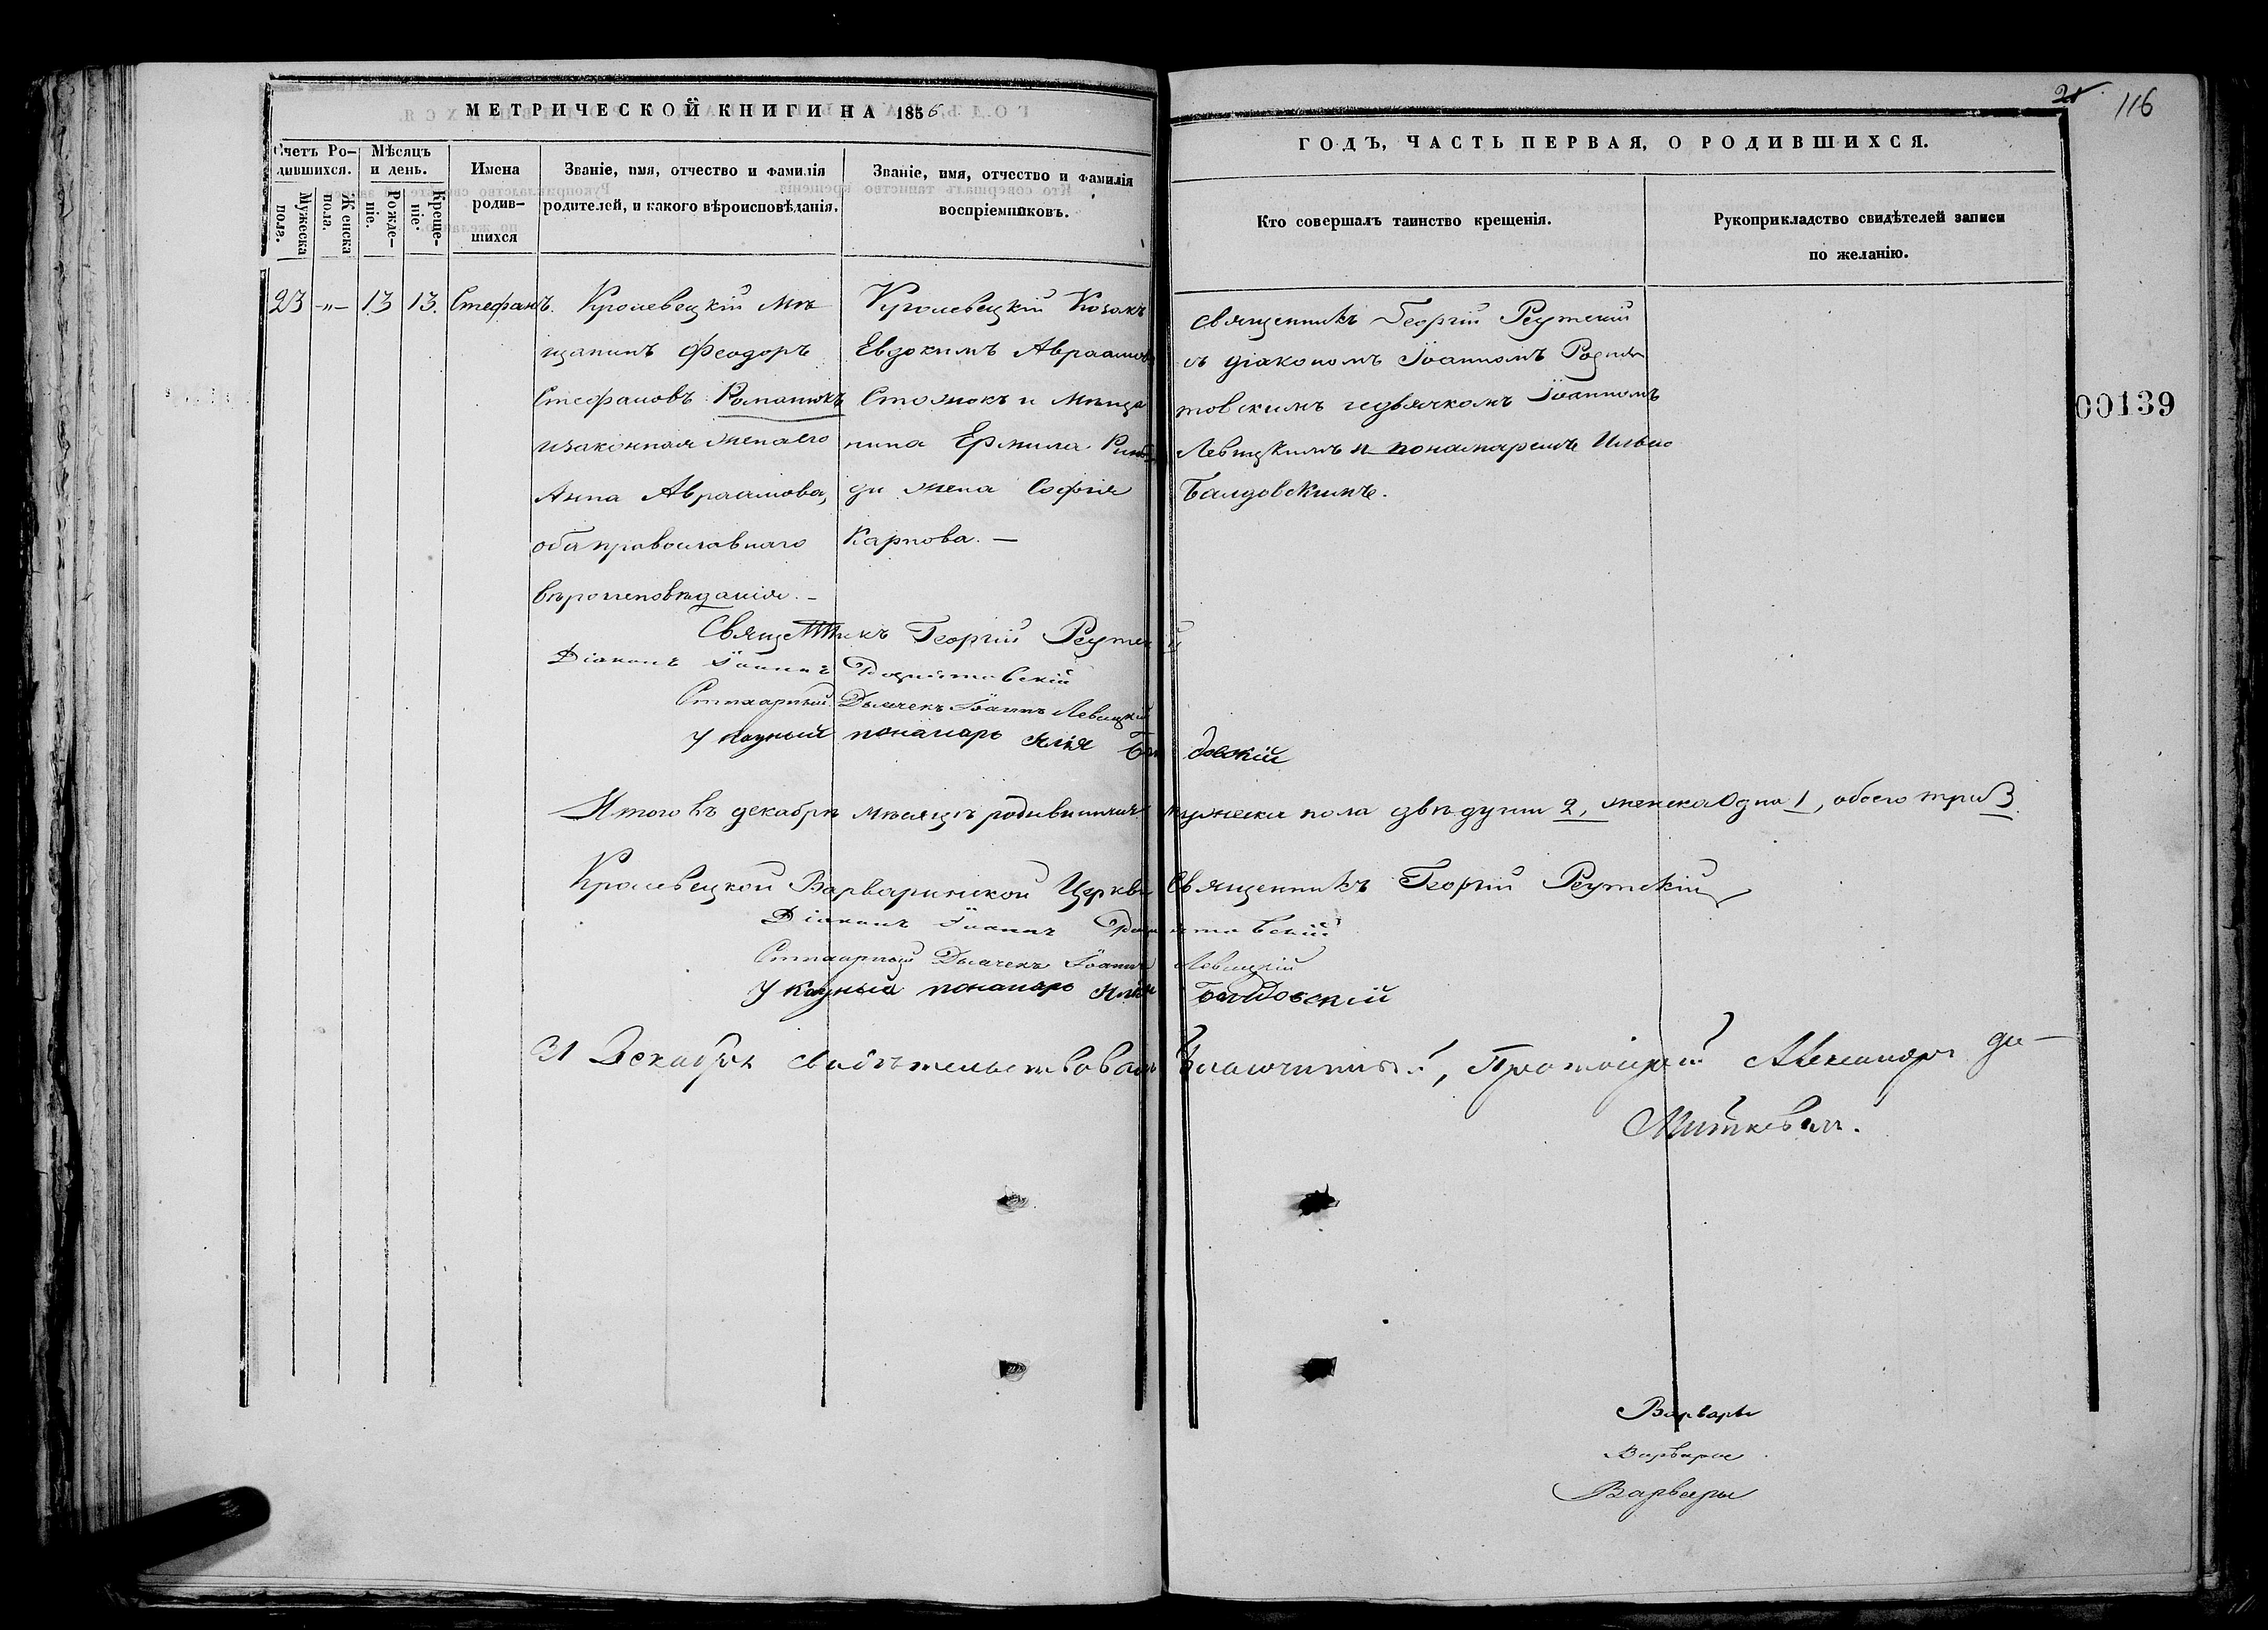 МЕТРИЧЕСКОЙ КНИГИ НА 1856
Счетъ Ро-
дившихся.
Мужеска
пола.
Женска
пола.
Мѣсяцъ
и день.
Рожде-
ніе.
Креще-
ніе.
Имена
родив-
шихся
Званіе, имя, отчество и фамилія
родителей, и какого вѣроисповѣданія.
Званіе, имя, отчество и фамилія
воспріемниковъ.
23 -"- 13 13. Стефанъ.
Кролевецкій Мѣ
щанинъ Феодоръ
Стефановъ Романюкъ
изаконная женаего
Анна Авраамова,
оба православнаго
вѣроисповѣданія. -
Кролевецкій Козакъ
Евдокимъ Авраамовъ
и Мѣща
нина Ермила
ди жена Софія
Карпова. —
Священникъ Георгій Реутскій
Діаконъ Іоаннъ
Стихарный Дьячекъ Іоаннъ Левицкій
Указный понамарь Илія Балдовскій
Итого въ декабрѣ мѣсяцѣ родившихся мужеска пола двѣ души 2, женска одна 1, обоего три 3.
Кролевецкой Варваринской Церкви Священникъ Георгій Реутскій
Діаконъ Іоаннъ
Стихарный Дьячекъ Іоаннъ Левицкій
Указный понамарь Илія Балдовскій
31 Декабря свидѣтельствовалъ Благочинный, Протоіерей Александръ
Миткевичъ.
21
116
ГОДЪ, ЧАСТЬ ПЕРВАЯ, О РОДИВШИХСЯ.
Кто совершалъ таинство крещенія.
Рукоприкладство свидѣтелей записи
по желанію.
священникъ Георгій Реутскій
съ діакономъ Іоанномъ
дьячкомъ Іоанномъ
Левицкимъ и понамаремъ Ильею
Балдовскимъ.
00139
Варвары
Варвары
Варвары